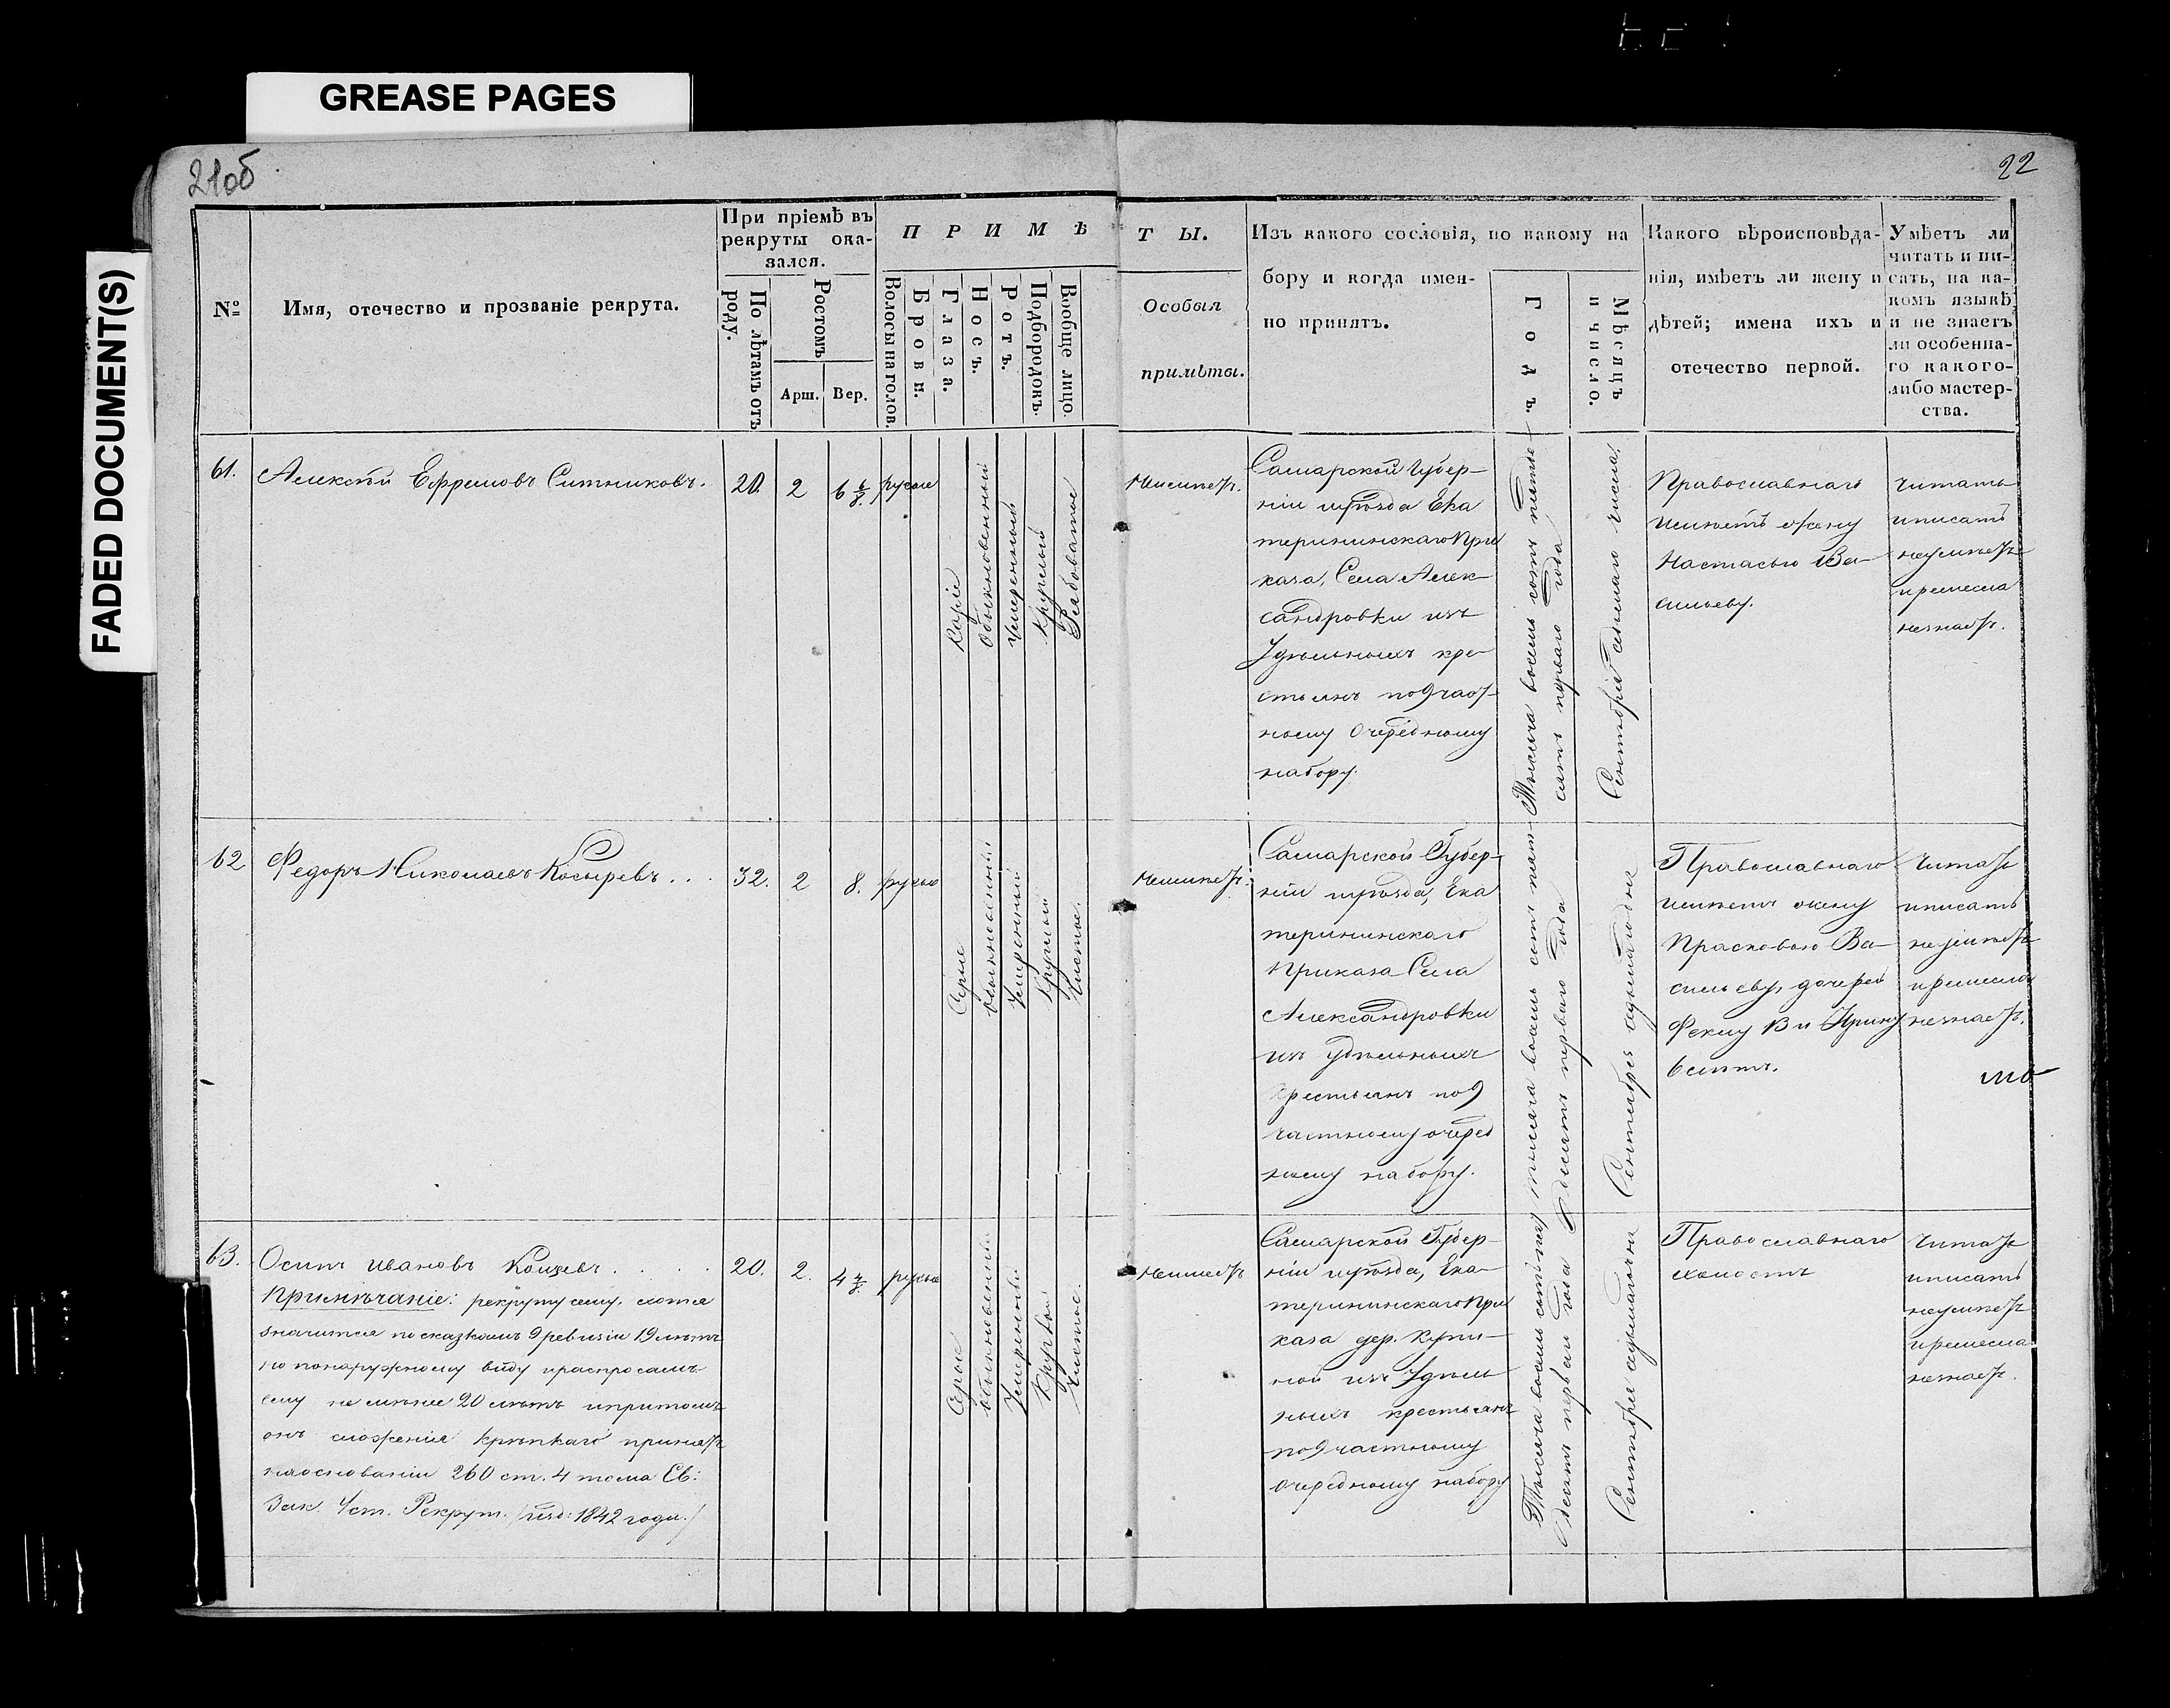 GREASE PAGES
FADED DOCUMENT(S)
21об
22
№
Имя, отечество и прозваніе рекрута.
При пріемѣ въ
рекруты ока-
зался.
По лѣтамъ отъ
роду.
Ростомъ
Арш.
Вер.
ПРИМѢ
Волосы на голов.
Брови.
Глаза.
Носъ.
Ротъ.
Подбородокъ.
Вообще лицо.
ТЫ.
Особыя
примѣты.
Изъ какого сословія, по какому на
бору и когда имен-
но принятъ.
Годъ.
Мѣсяцъ
и число.
Какого вѣроисповѣда-
нія, имѣетъ ли жену и
дѣтей; имена ихъ и
отечество первой.
Умѣетъ ли
читать и пи-
сать, на ка-
комъ языкѣ
и не знаетъ
ли особенна-
го какого-
либо мастер-
ства.
61.
Алексѣй Ефремовъ Ситниковъ.
20.
2
6 6/8.
русые
Каріе
Обыкновенный
Умѣренный
Круглый
Рябоватое
Неимѣетъ.
Самарской Губер-
ніи уѣзда Ека
терининскаго При
каза, Села Алек-
сандровки изъ
Удѣльныхъ кре-
стьянъ по 9 част-
ному очередному
набору.
Тысяча восемь сотъ пятьде
сятъ перваго года
Сентября седьмаго числа.
Православнаго
имѣетъ жену
Настасью Ва-
сильеву.
Читать
иписать
неумѣетъ
иремесла
незнаетъ.
62
Федоръ Николаевъ Косыревъ...
32.
2
8.
русые
Серые
обыкновенный
Умѣренный
Круглый
Чистое.
Неимѣетъ.
Самарской Губер-
ніи уѣзда, Ека
терининскаго
Приказа Села
Александровки
изъ Удѣльныхъ
Крестьянъ по 9
частному очеред
ному набору.
Тысяча восемь сотъ пять-
десятъ перваго года
Сентября седьмагодня
Православнаго
имѣетъ жену
Прасковью Ва-
сильеву, дочерей
Феклу 8 и Ирину
6 лѣтъ.
Читать
иписать
неумѣетъ
иремесла
незнаетъ.
63.
Осипъ Ивановъ Концевъ....
Примѣчаніе: рекруту сему, хотя
значится по сказкамъ 9 ревизіи 19 лѣтъ
но понаружному виду ираспросамъ
ему не менѣе 20 лѣтъ ипритомъ
онъ сложенія крѣпкаго принятъ
наоснованіи 260 ст. 4 тома Св:
Зак. Уст. Рекрут. /изд: 1842 года./
20.
2.
русые
Серые
обыкновенный
Умѣренный
Круглый
Чистое.
Неимеетъ
Самарской Губер-
ніи уѣзда, Ека-
терининскаго При
каза дер. Купи-
ной изъ Удѣль
ныхъ крестьянъ
по 9 частному
очередному набору
Тысяча восемь сотъ пять
десятъ перваго года
Сентября седьмагодня
Православнаго
холостъ
Читать
иписать
неумѣетъ
иремесла.
незнаетъ.